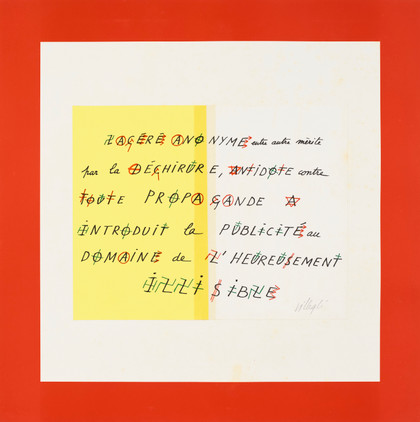 LACÉRÉ ANONYME entre autre mérite
par la DÉCHIRURE, ANTIDOTE contre
TOUTE PROPAGANDE A
INTRODUIT la PUBLICITÉ au
DOMAINE de L'HEUREUSEMENT
ILLISIBLE
Villeglé